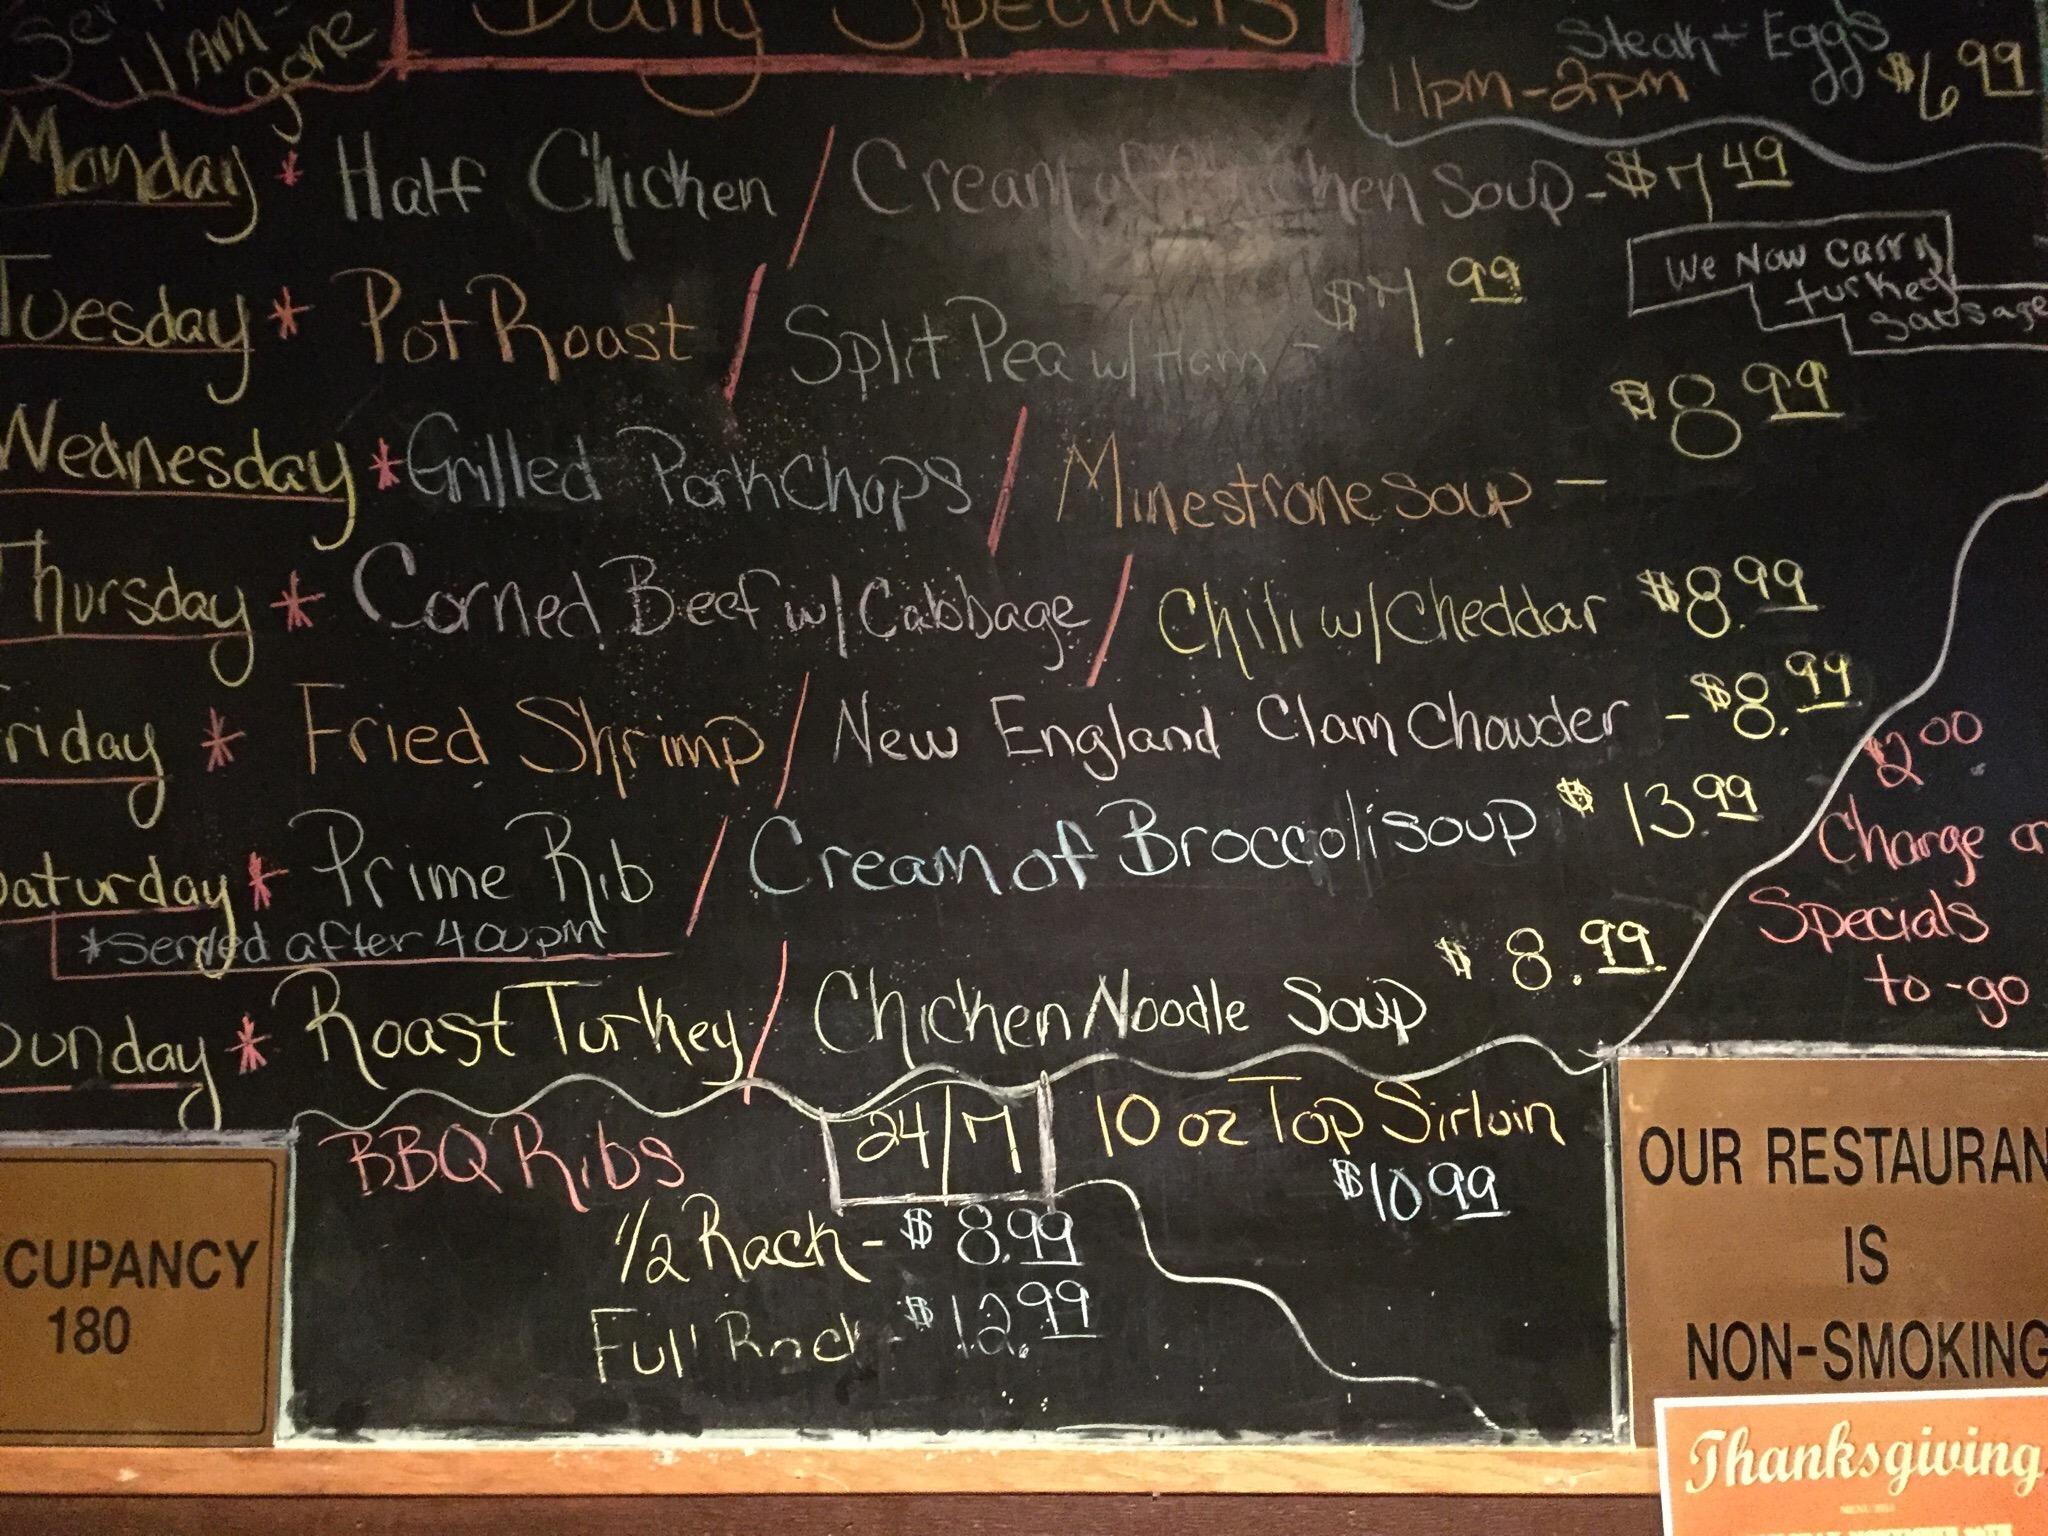 11 AM -
gone
Daily Specials
Steak + Eggs
11pm-2pm $6 99
Monday * Half Chicken / Cream of Chicken Soup - $7 49
We Now Carry
turkey
Sausage
Tuesday * Pot Roast / Split Pea w/ Ham - $7.99
Wednesday * Grilled Pork Chops / Minestrone Soup - $8 99
Thursday * Corned Beef w/ Cabbage / Chili w/ Cheddar $8.99
Friday * Fried Shrimp / New England Clam Chowder - $8.99
Saturday * Prime Rib / Cream of Broccoli Soup $13.99
*Served after 400pm
Sunday * Roast Turkey / Chicken Noodle Soup $8.99
$2 00
Charge on
Specials
to-go
BBQ Ribs
1/2 Rack - $8.99
Full Rack - $12.99
24/7
10 oz Top Sirloin
$10 99
CUPANCY
180
OUR RESTAURAN
IS
NON-SMOKING
Thanksgiving